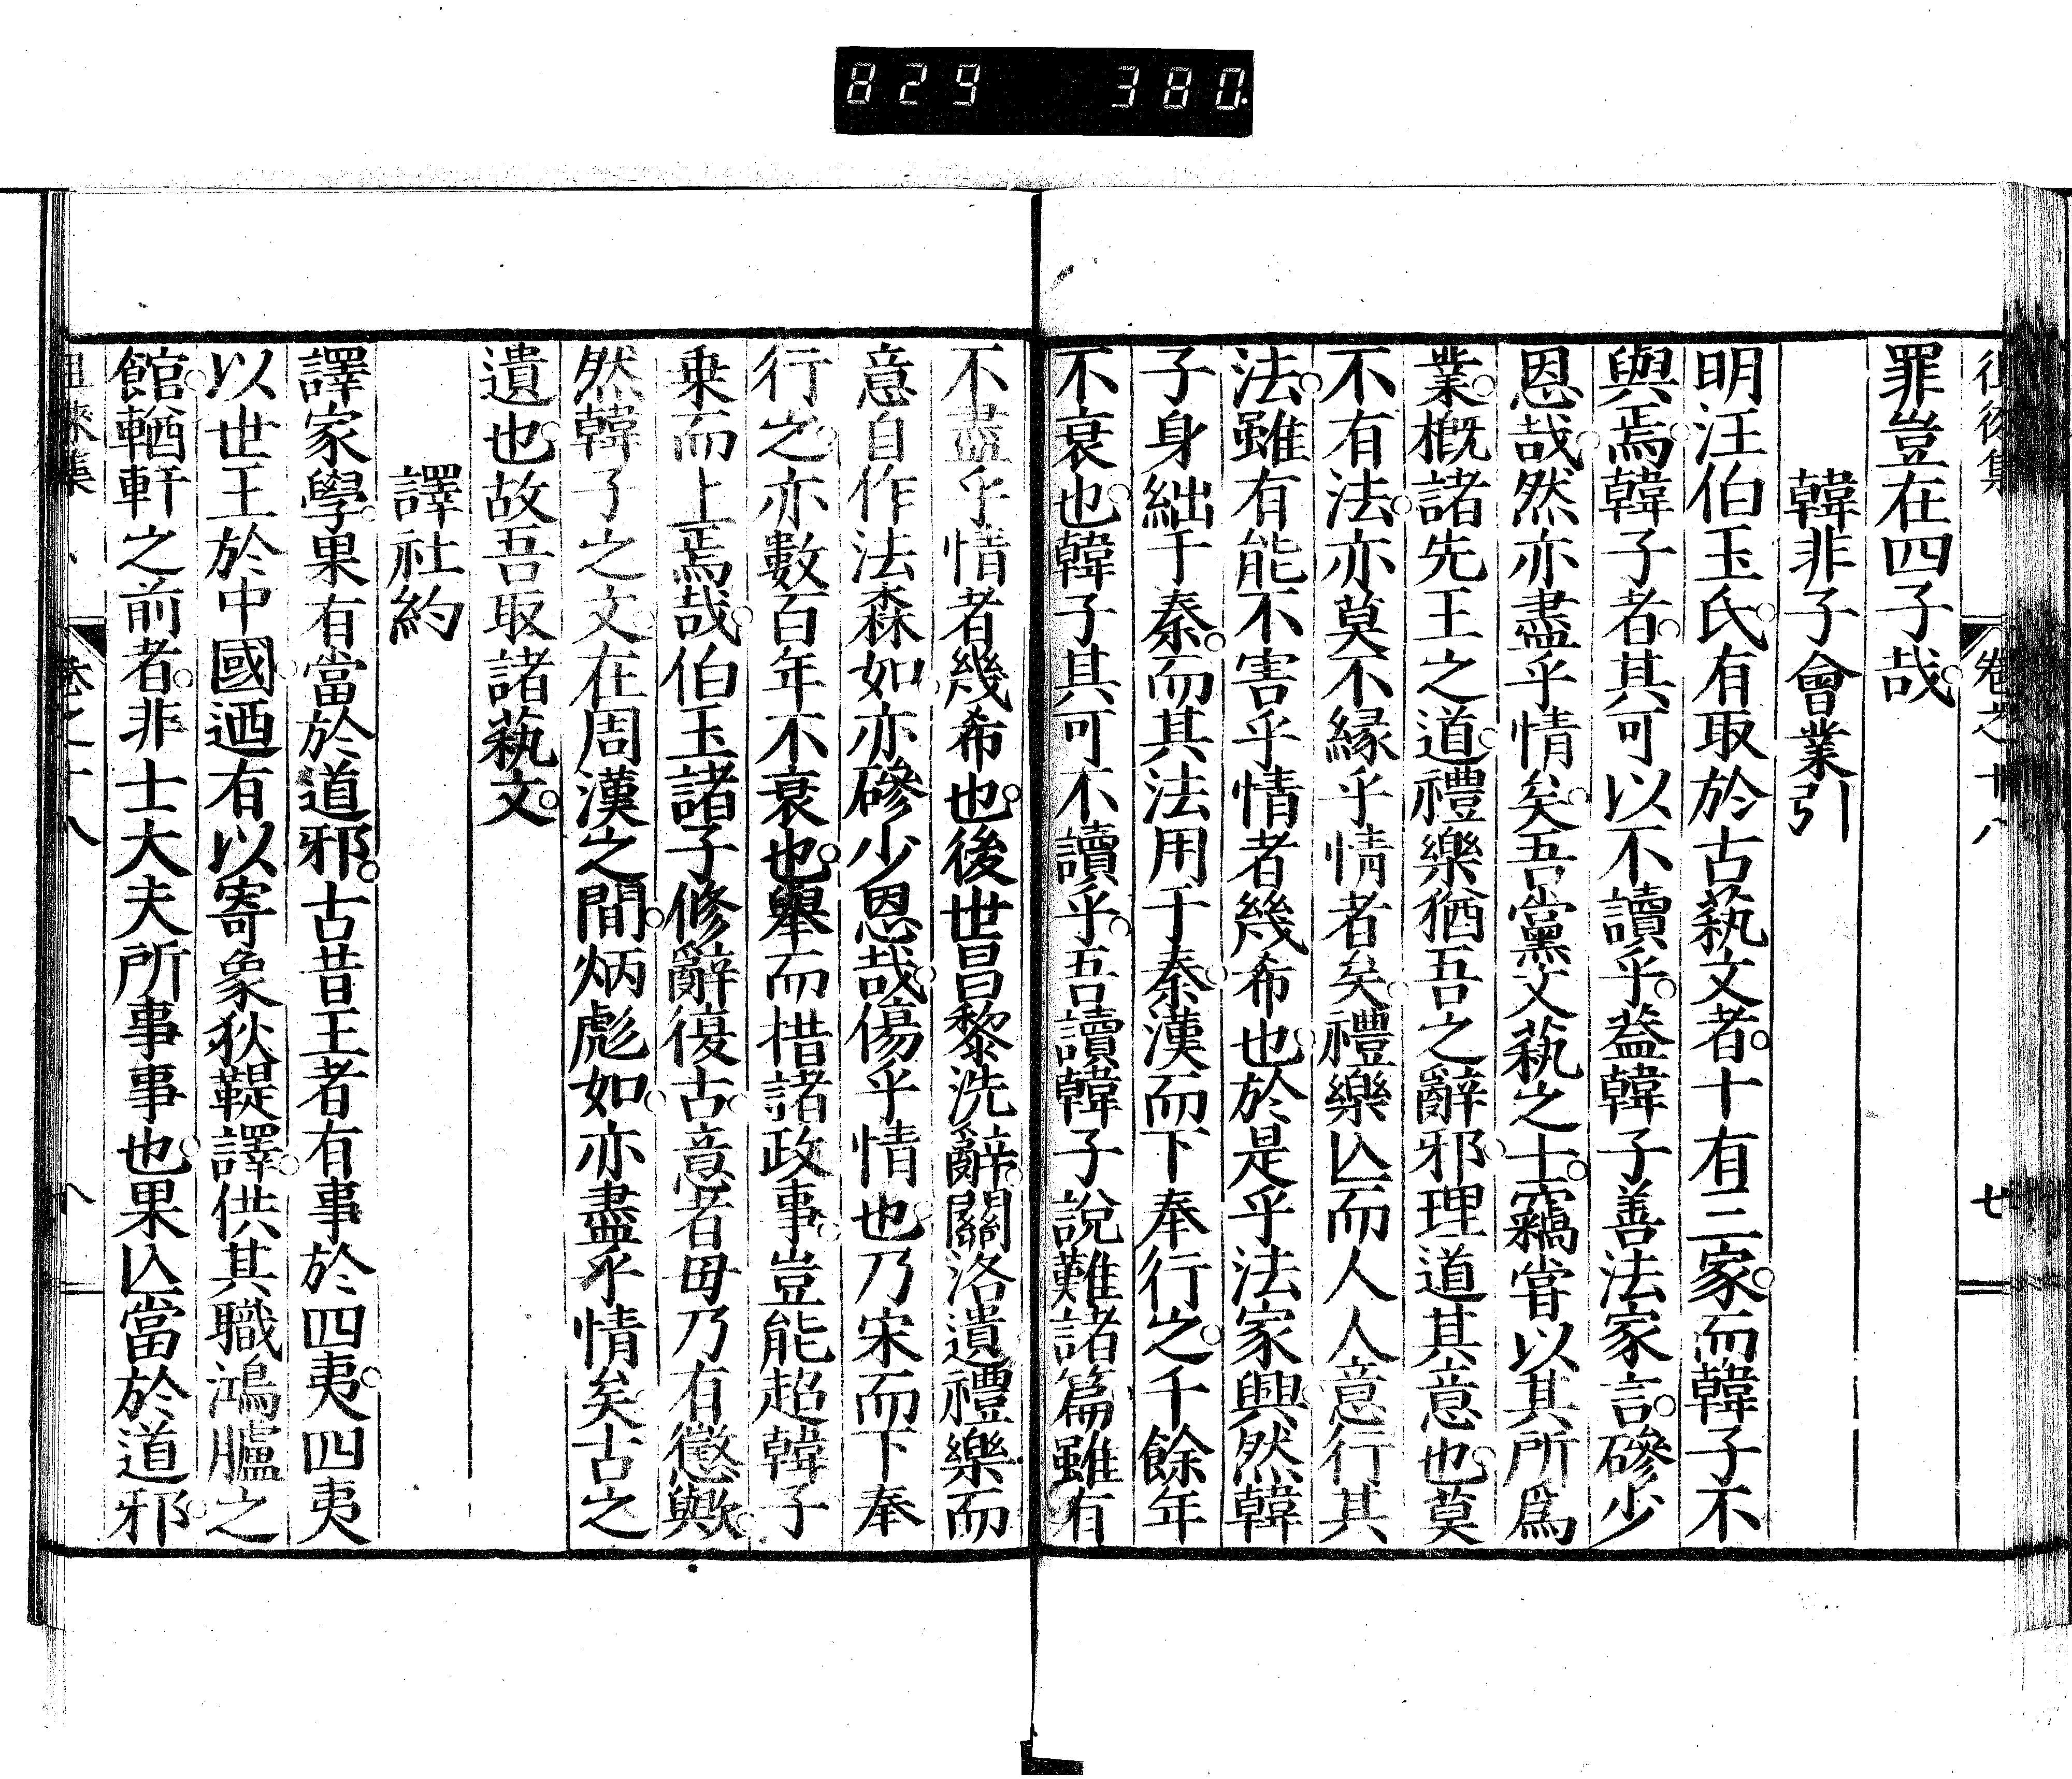 829 380.
罪豈在四子哉。
韓非子會業引
明汪伯玉氏。有取於古藝文者。十有三家。而韓子不
與焉。韓子者。其可以不讀乎。蓋韓子善法家言。磣少
恩哉。然亦盡乎情矣。吾黨文藝之士。竊嘗以其所爲
業。概諸先王之道。禮樂猶吾之辭邪。理道其意也。莫
不有法。亦莫不縁乎情者矣。禮樂亾而人人意行其
法。雖有能不害乎情者幾希也。於是乎法家興。然韓
子身絀于秦。而其法用于秦。漢而下奉行之。千餘年
不衰也。韓子其可不讀乎。吾讀韓子說難諸篇。雖有
不盡乎情者幾希也。後世昌黎洗辭。關洛遺禮樂而
意自作法。森如。亦磣少恩哉。傷乎情也。乃宋而下奉
行之。亦數百年不衰也。舉而措諸政事。豈能超韓子
乗而上焉哉。伯玉諸子修辭復古。意者毋乃有懲歟。
然韓子之文。在周漢之間。炳彪如。亦盡乎情矣。古之
遺也。故吾取諸藝文。
譯社約
譯家學。果有當於道邪。古昔王者有事於四夷。四夷
以世王於中國。迺有以寄象狄鞮譯。供其職鴻臚之
館。輶軒之前者。非士大夫所事事也。果亾當於道邪。